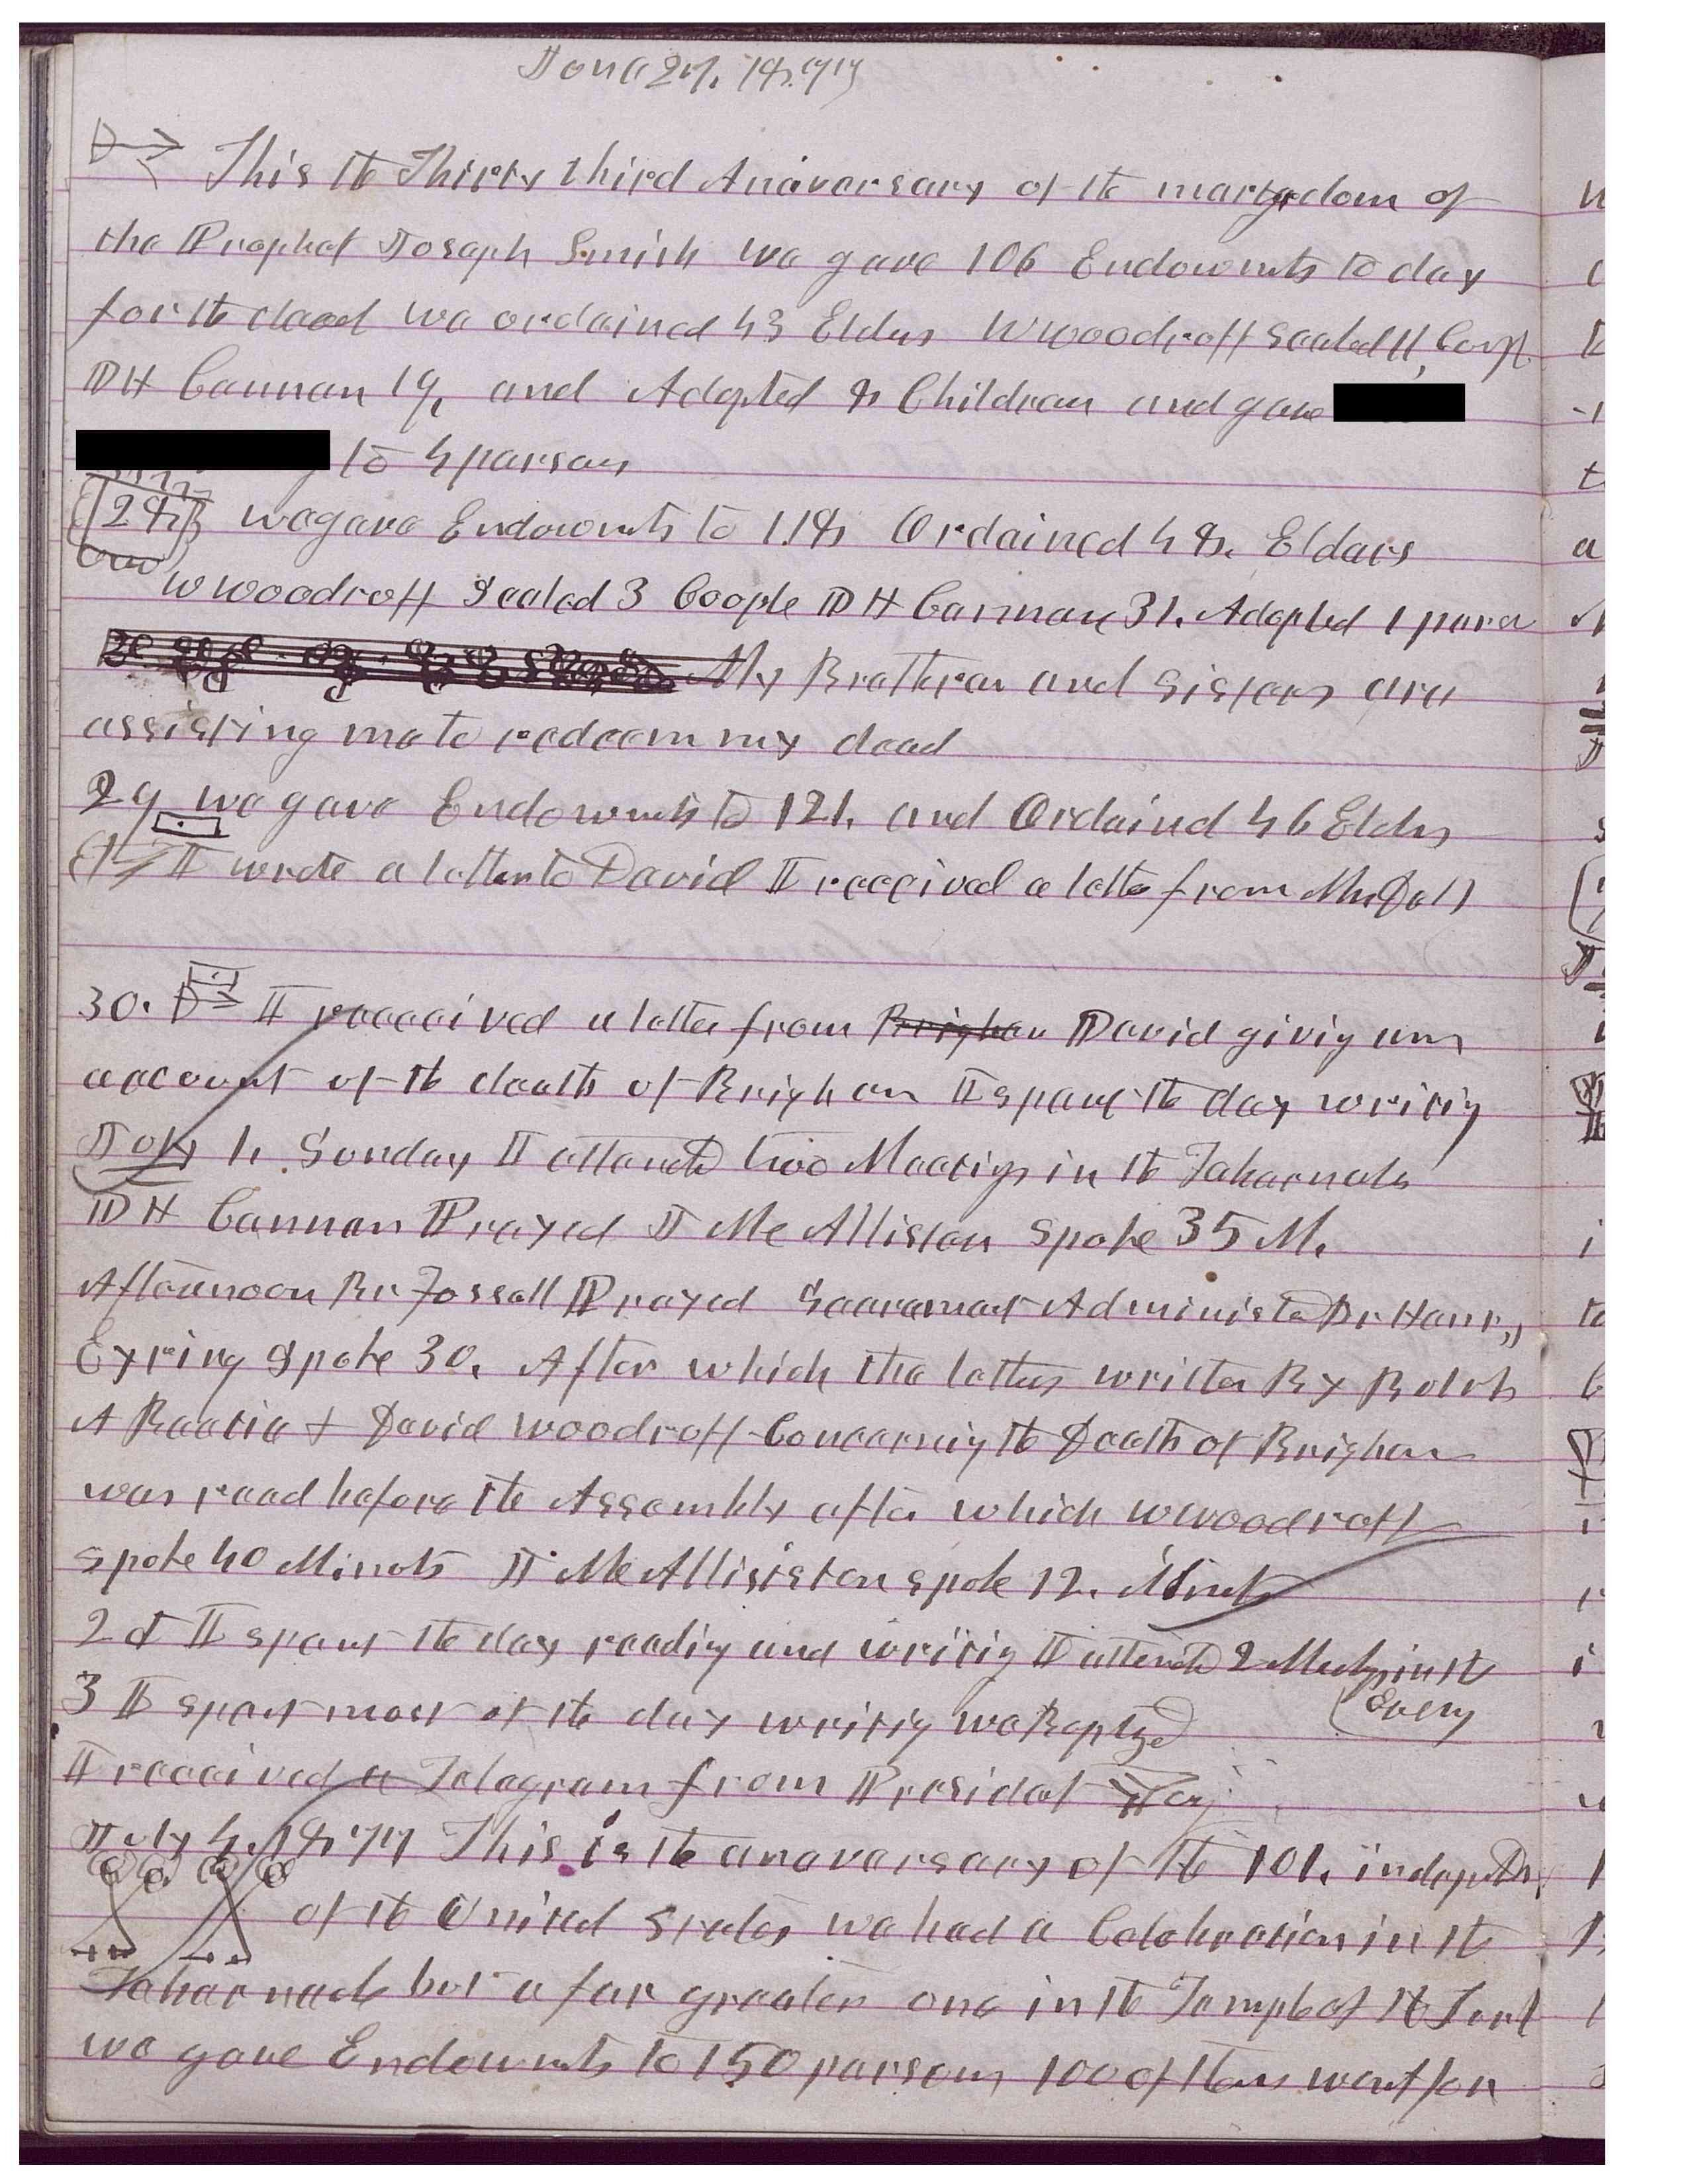 June 27, 1877
This the Thirty third Aniversary of the martyrdom of
the Prophet Joseph Smith we gave 106 Endowmts to day
for the dead we ordained 43 Elders W woodruff Sealed 11, Coupl
D H Cannan 19, and Adopted 8 Children and gave
to 4 persons
28 we gave Endowmts to 118 Ordained 48. Elders
W woodruff Sealed 3 Couple D H Cannan 31. Adopted 1 person
My Brethren and sisters are
assisting me to redeem my dead
29 we gave Endowmts to 121. and Ordained 46 Elders
I wrote a letter to David I received a letter from
30. I received a letter from Brigham David givig um
account of the death of Brigham I spent the day writig
July 1. Sunday I attended two Meetigs in the Tabernacle
D H Cannan Prayed J Mc Allister Spoke 35 M.
Afternoon Br Fossett Prayed Sacrament Administed Br Henry
Eyring Spoke 30. After which the letters written By Bulah
A Beatie & David Woodruff Concernig the Death of Brigham
was read before the Assembly after which W woodruff
spoke 40 Minuts J McAllister spoke 12. Minuts
2d I spent the day readig and writig I attended 2 Meetings in the
Eveng
3 I spent most of the day writig we Baptized
I received a Telegram from Presidet
July 4. 1877 This is the anaversary of the 101. independ
of the United States we had a Celebration in the
Tabernacle but a far greater one in the Temple of the Lord
we gave Endowmts to 150 persons 100 of them went for